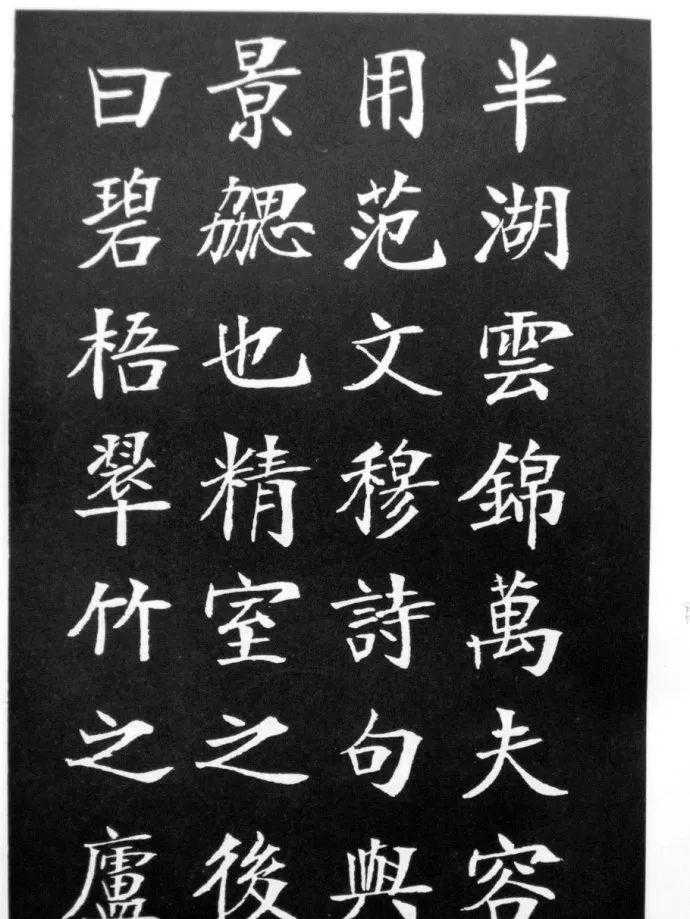 半湖雲錦萬夫容
用范文穆詩句與
景勰也精室之後
曰碧梧翠竹之廬